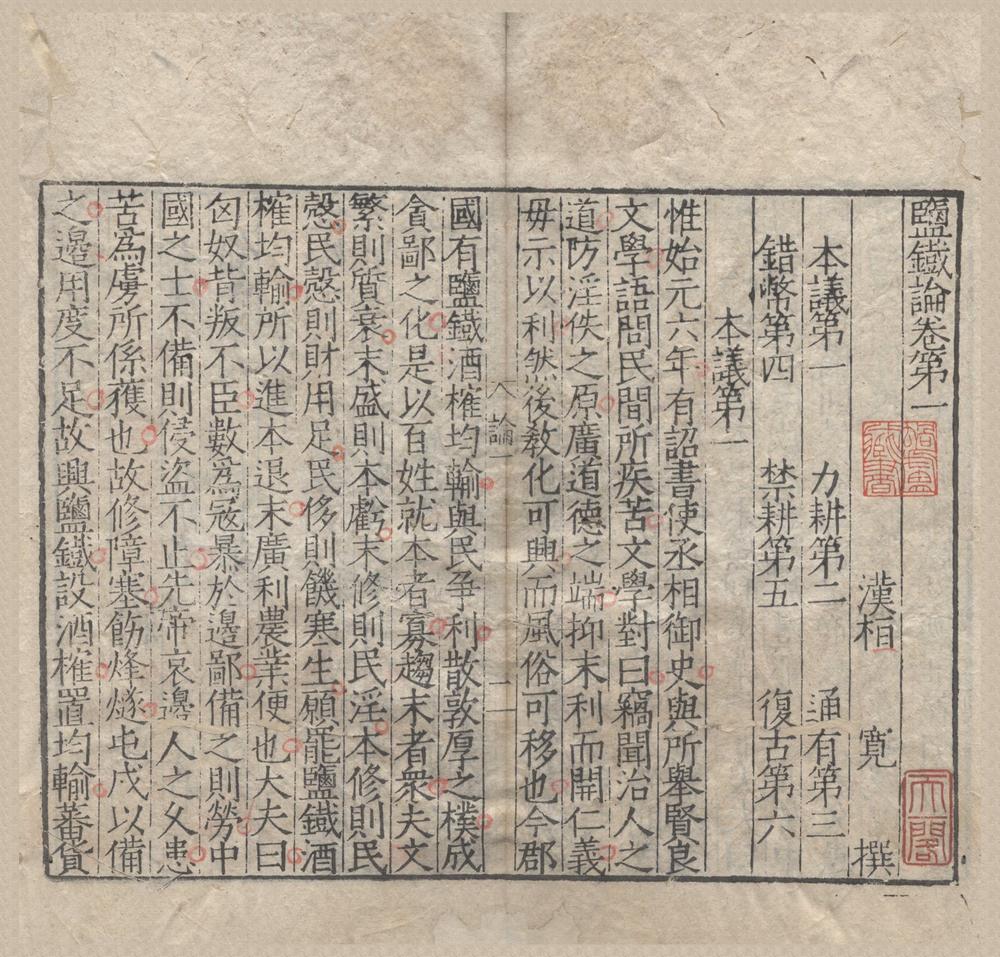 鹽鐵論卷第一
漢桓 寬 撰
本議第一 力耕第二 通有第三
錯幣第四 禁耕第五 復古第六
本議第一
惟始元六年有詔書使丞相御史與所舉賢良
文學語問民間所疾苦文學對曰竊聞治人之
道防淫佚之原廣道德之端抑末利而開仁義
毋示以利然後敎化可興而風俗可移也今郡
國有鹽鐵酒榷均輸與民爭利散敦厚之樸成
貪鄙之化是以百姓就本者寡趨末者衆夫文
繁則質衰末盛則本虧末修則民淫本修則民
慤民慤則財用足民侈則饑寒生願罷鹽鐵酒
榷均輸所以進本退末廣利農業便也大夫曰
匈奴背叛不臣數爲寇暴於邊鄙備之則勞中
國之士不備則侵盜不止先帝哀邊人之久患
苦爲虜所係獲也故修障塞飭烽燧屯戍以備
之邊用度不足故興鹽鐵設酒榷置均輸蕃貨
論一
天一閣